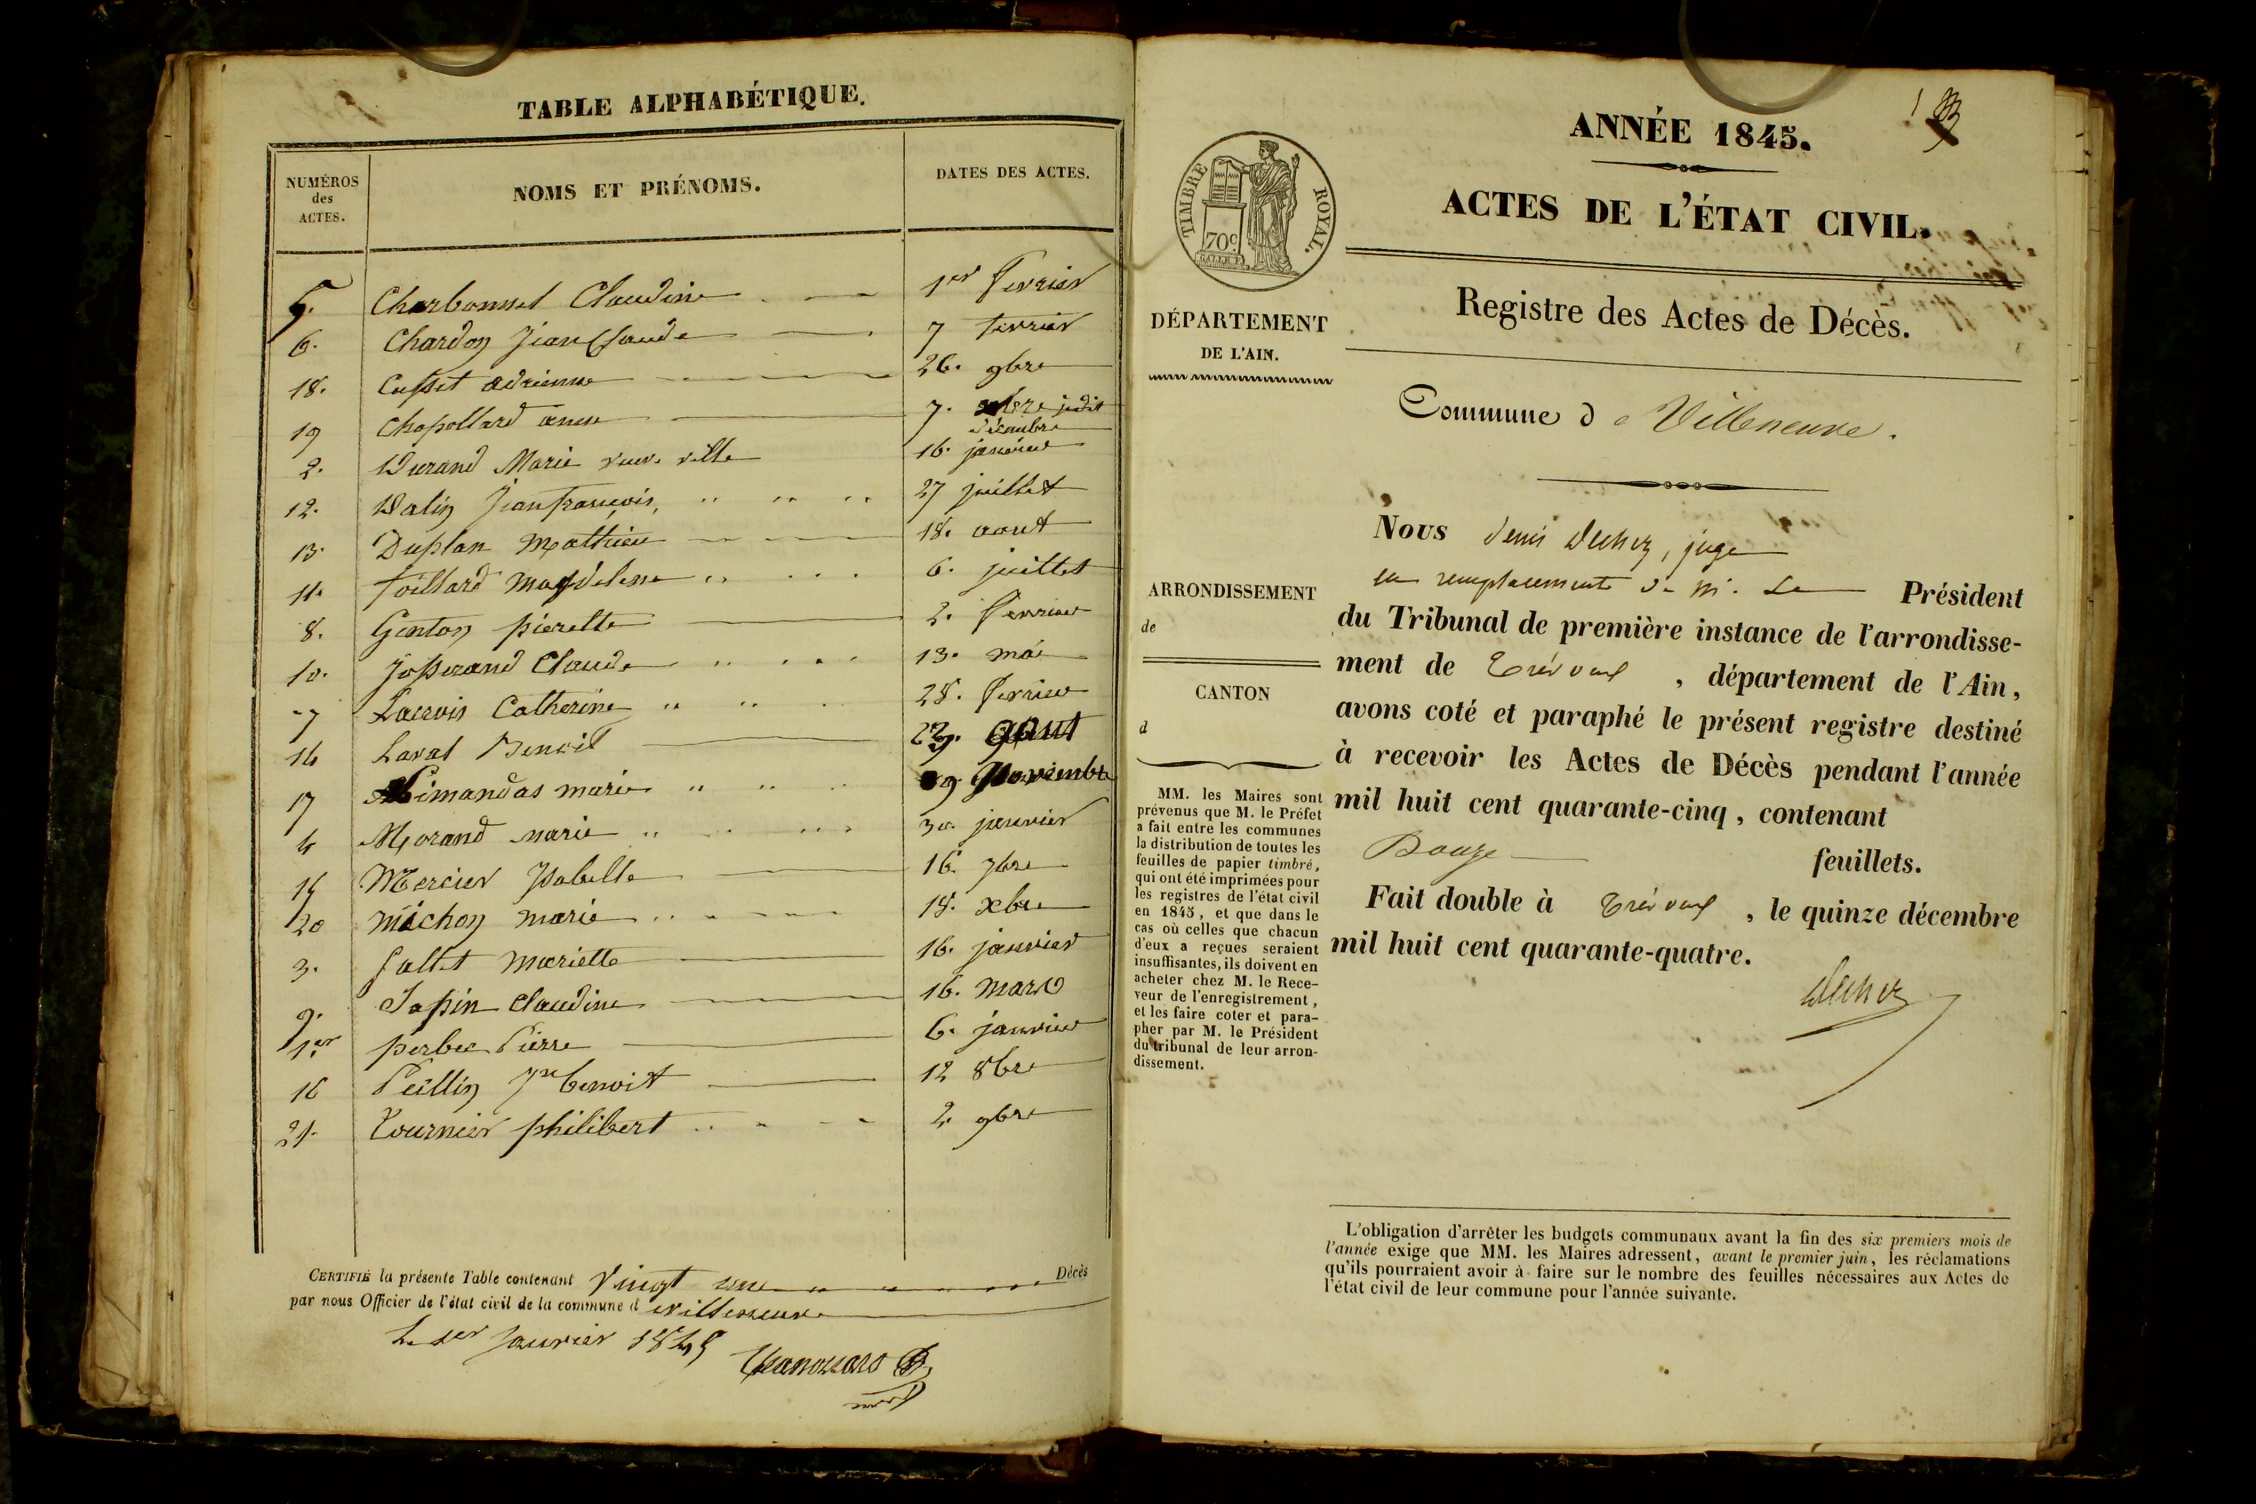 TABLE ALPHABÉTIQUE.
NUMÉROS
des
ACTES.
NOMS ET PRÉNOMS.
DATES DES ACTES.
5. Charbonnet Claudine 1er Fevrier
6. Chardon Jean Claude 7 fevrier
18. Cusset adrienne 26. 9bre
19 Chapollard 7. decembre
2. Durand Marie veuve 16. janvier
12. Dalin Jean françois 27 juillet
13. Duplan Mathieu 18. aout
11. foillard Magdelene 6. juillet
8. Genton pierette 2. fevrier
10. Josserand Claude 13. mai
7 Lacroix Catherine 28. fevrier
14 Laval Benoit 29. aout
17 Limandas marie 9 Novembre
4 Morand marie 30. janvier
15 Mercier Isabelle 16. 7bre
20 Michon marie 18. xbre
3. Sallet Mariette 16. janvier
9. Sapin Claudine 16. Mars
1er Pierre 6. janvier
16 Peillin Jn benoit 12 8bre
21. Tournier philibert 2. 9bre
CERTIFIÉ la présente Table contenant Vingt une Décès
par nous Officier de l'état civil de la commune d e villeneuve
Le 1er Janvier 1845
ANNÉE 1845.
ACTES DE L'ÉTAT CIVIL.
TIMBRE ROYAL.
70c
DÉPARTEMENT
DE L'AIN.
Registre des Actes de Décès.
Commune d e Villeneuve.
ARRONDISSEMENT
de
CANTON
d
MM. les Maires sont
prévenus que M. le Préfet
a fait entre les communes
la distribution de toutes les
feuilles de papier timbré,
qui ont été imprimées pour
les registres de l'état civil
en 1845, et que dans le
cas où celles que chacun
d'eux a reçues seraient
insuffisantes, ils doivent en
acheter chez M. le Rece-
veur de l'enregistrement,
et les faire coter et para-
pher par M. le Président
du tribunal de leur arron-
dissement.
Nous Denis juge
en remplacement de M. Le Président
du Tribunal de première instance de l'arrondisse-
ment de Trévoux, département de l'Ain,
avons coté et paraphé le présent registre destiné
à recevoir les Actes de Décès pendant l'année
mil huit cent quarante-cinq, contenant
Douze feuillets.
Fait double à Trévoux, le quinze décembre
mil huit cent quarante-quatre.
L'obligation d'arrêter les budgets communaux avant la fin des six premiers mois de
l'année exige que MM. les Maires adressent, avant le premier juin, les réclamations
qu'ils pourraient avoir à faire sur le nombre des feuilles nécessaires aux Actes de
l'état civil de leur commune pour l'année suivante.